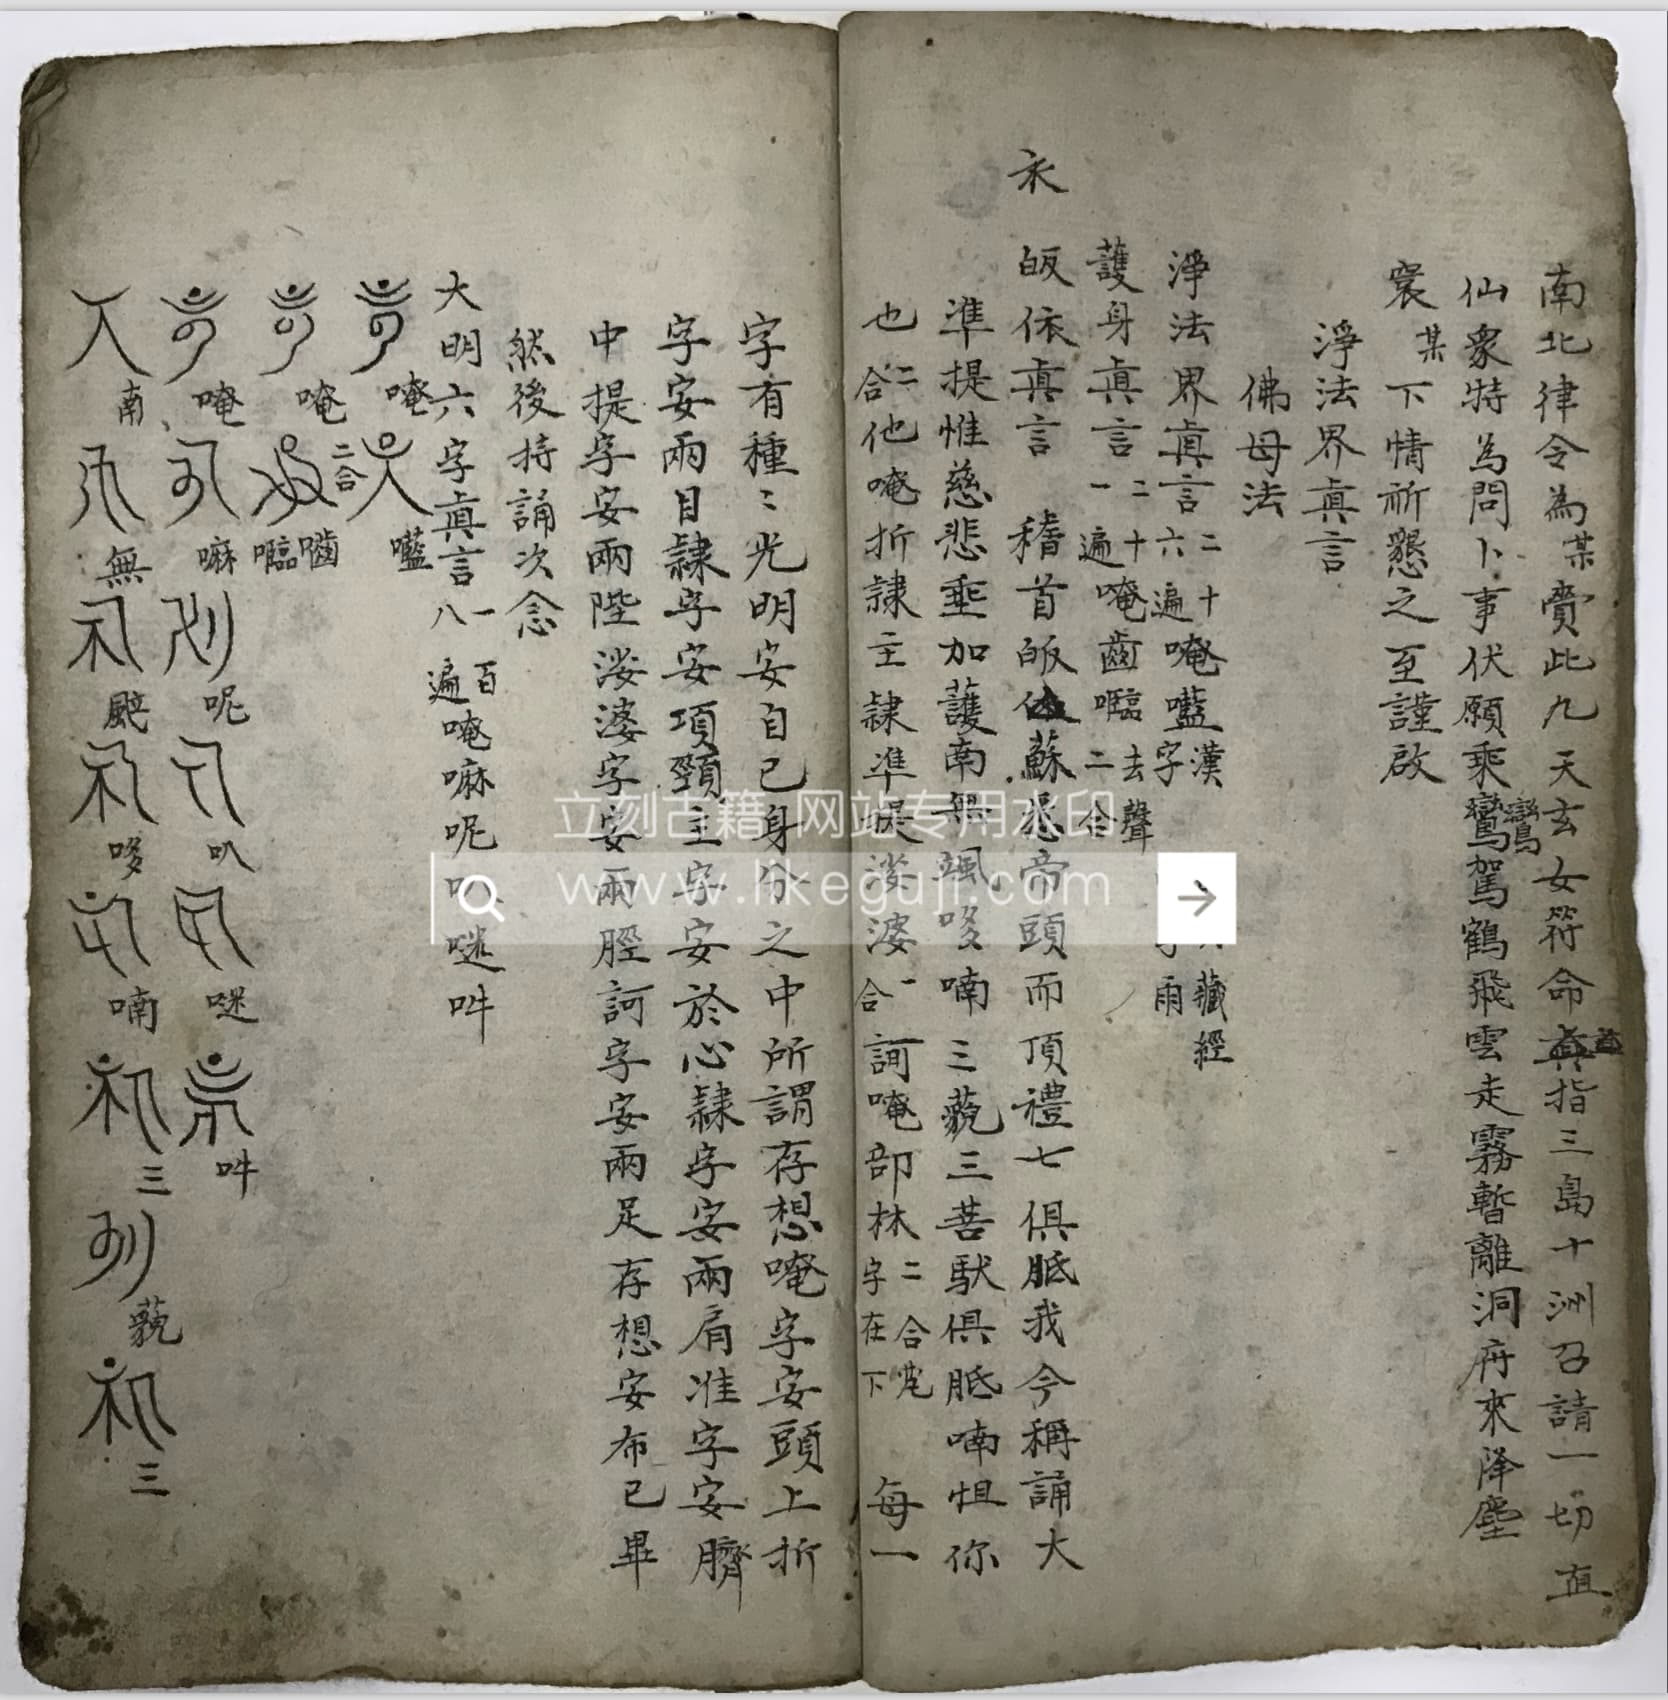 南北律令為某賫此九天玄女符命真指三島十洲召請一切直
仙衆特為問卜事伏願乘鸞駕鶴飛雲走霧暫離洞府來降塵
寰某下情祈懇之至謹啟
淨法界真言
佛母法
淨法界真言二十六遍唵㘕漢字
藏經
護身真言二十一遍唵齒㘕去聲二合
皈依真言 稽首皈依蘇悉帝頭而頂禮七俱胝我今稱誦大
準提惟慈悲垂加護南無颯哆喃三藐三菩馱俱胝喃怛你
也二合他唵折隸主隸準提娑婆一合訶唵部林二合字在下 每一
字有種種光明安自己身分之中所謂存想唵字安頭上折
字安兩目隸字安項頸主字安於心隸字安兩肩准字安臍
中提字安兩陛娑婆字安兩脛訶字安兩足存想安布已畢
然後持誦次念
大明六字真言一百八遍唵嘛呢叭𠺗吽
唵 㘕
唵 二合 齒 㘕
唵 嘛 呢 叭 𠺗 吽
南 無 颯 哆 喃 三 藐 三
立刻古籍 网站专用水印
www.likeguji.com